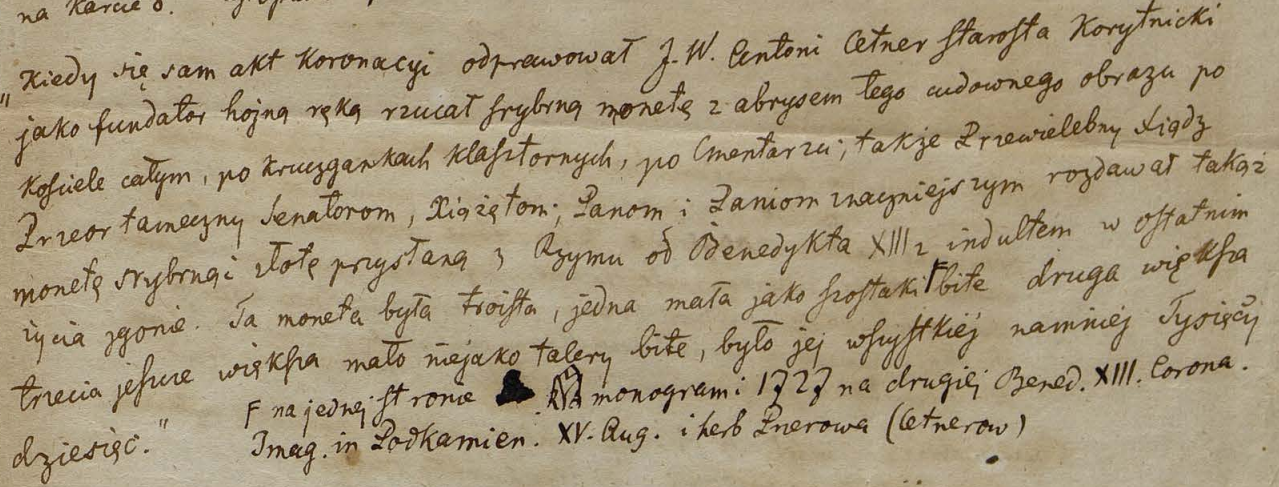 na Karcie 8.
"Kiedy się sam akt Koronacyi odprawował J. W. Antoni Cetner Starosta Korytnicki
jako fundator hojną ręką rzucał srybrną monetę z abrysem tego cudownego obrazu po
Kościele całym, po kruczgankach klasztornych, po Cmentarzu; także Przewielebny Xiądz
Przeor tameczny Senatorom, Xiążętom; Panom i Paniom znaczniejszym rozdawał takąż
monetę srybrną i złotę przysłaną z Rzymu od Benedykta XIII z indultem w ostatnim
życia zgonie. Ta moneta była troista, jedna mała jako szostaki F bite druga większa
trzecia jeszcze większa mało niejako talery bite, było jej wszystkiéj namniéj Tysięcy
dziesięć."
F na jednej stronie monogram i 1727 na drugiéj Bened. XIII. Corona.
Imag. in Podkamien. XV. Aug. i herb Pnerowa (Cetnerow)